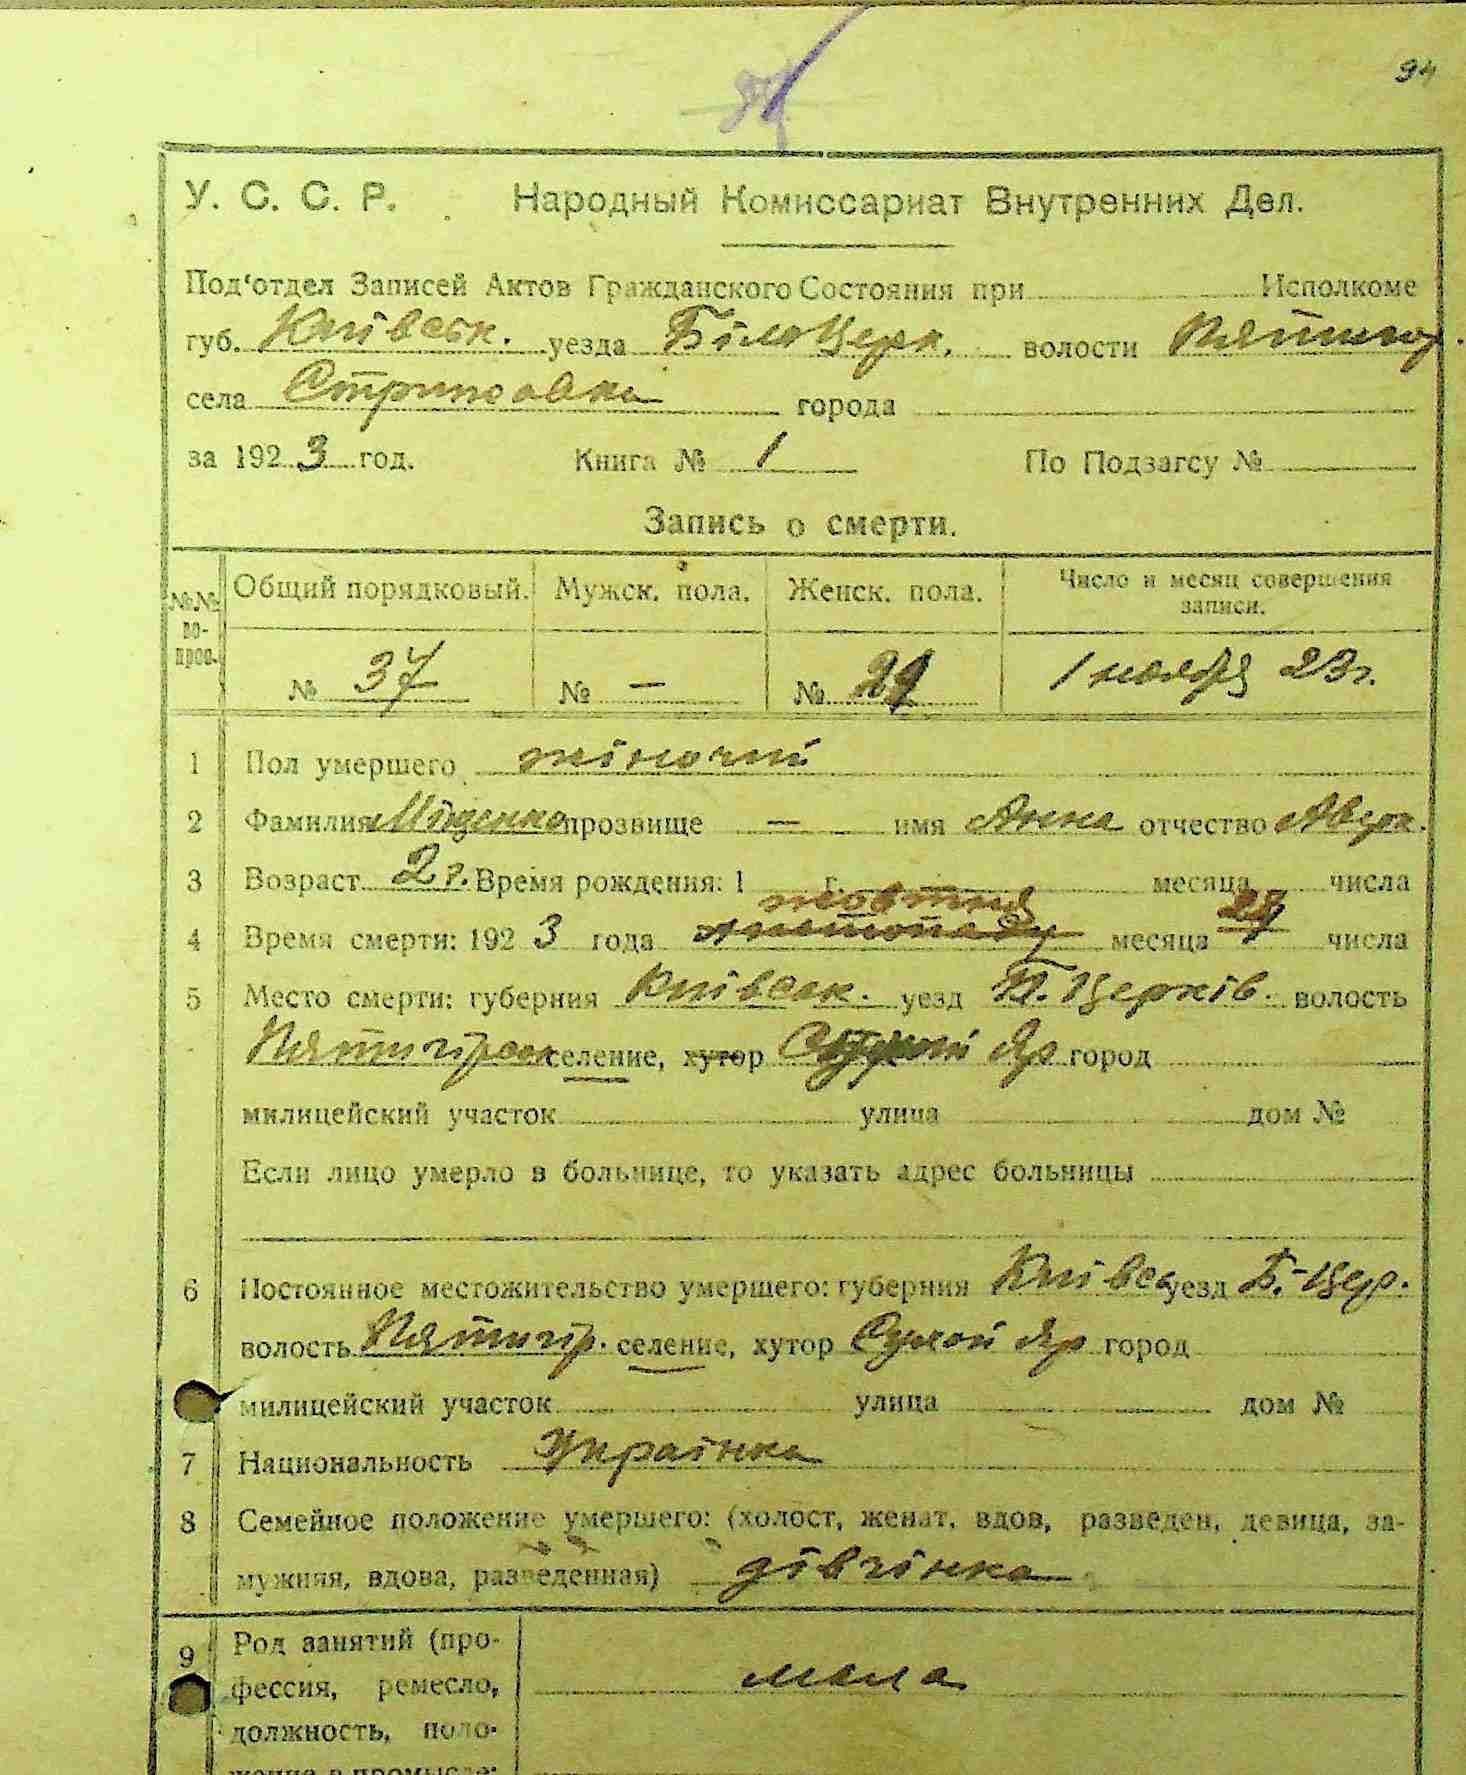 94
У. С. С. Р. Народный Комиссариат Внутренних Дел.
Под‘отдел Записей Актов Гражданского Состояния при Исполкоме
губ. Київськ. уезда Біло Церк. волости Пятигор.
села Стрипсовка города
за 1923 год. Книга № 1 По Подзагсу №
Запись о смерти.
№№ во-прос. Общий порядковый. Мужск. пола. Женск. пола. Число и месяц совершения записи.
№ 37 № — № 29 1 ноября 23 г.
1 Пол умершего жіночий
2 Фамилия Міщенко прозвище — имя Анна отчество Аверк.
3 Возраст 2 г. Время рождения: 1 г. месяца числа
жовтня
4 Время смерти: 1923 года листопаду месяца числа
5 Место смерти: губерния Київськ. уезд Б. Церків. волость
Пятигірськ селение, хутор Сухий Яр город
милицейский участок улица дом №
Если лицо умерло в больнице, то указать адрес больницы
6 Постоянное местожительство умершего: губерния Київсь уезд Б.-Цер.
волость Пятигір. селение, хутор Сухой Яр город
милицейский участок улица дом №
7 Национальность Українка
8 Семейное положение умершего: (холост, женат, вдов, разведен, девица, за-
мужняя, вдова, разведенная) дівчінка
9 Род занятий (про-
фессия, ремесло, мала
должность, поло-
жение в промысле: